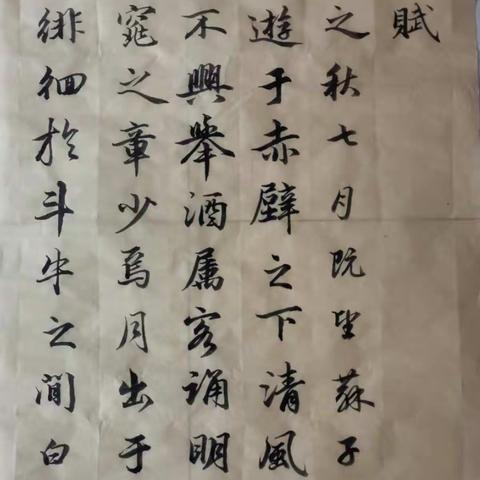 賦
之秋七月既望蘇子
遊于赤壁之下清風
不興舉酒属客誦明
窕之章少焉月出于
徘徊於斗牛之間白